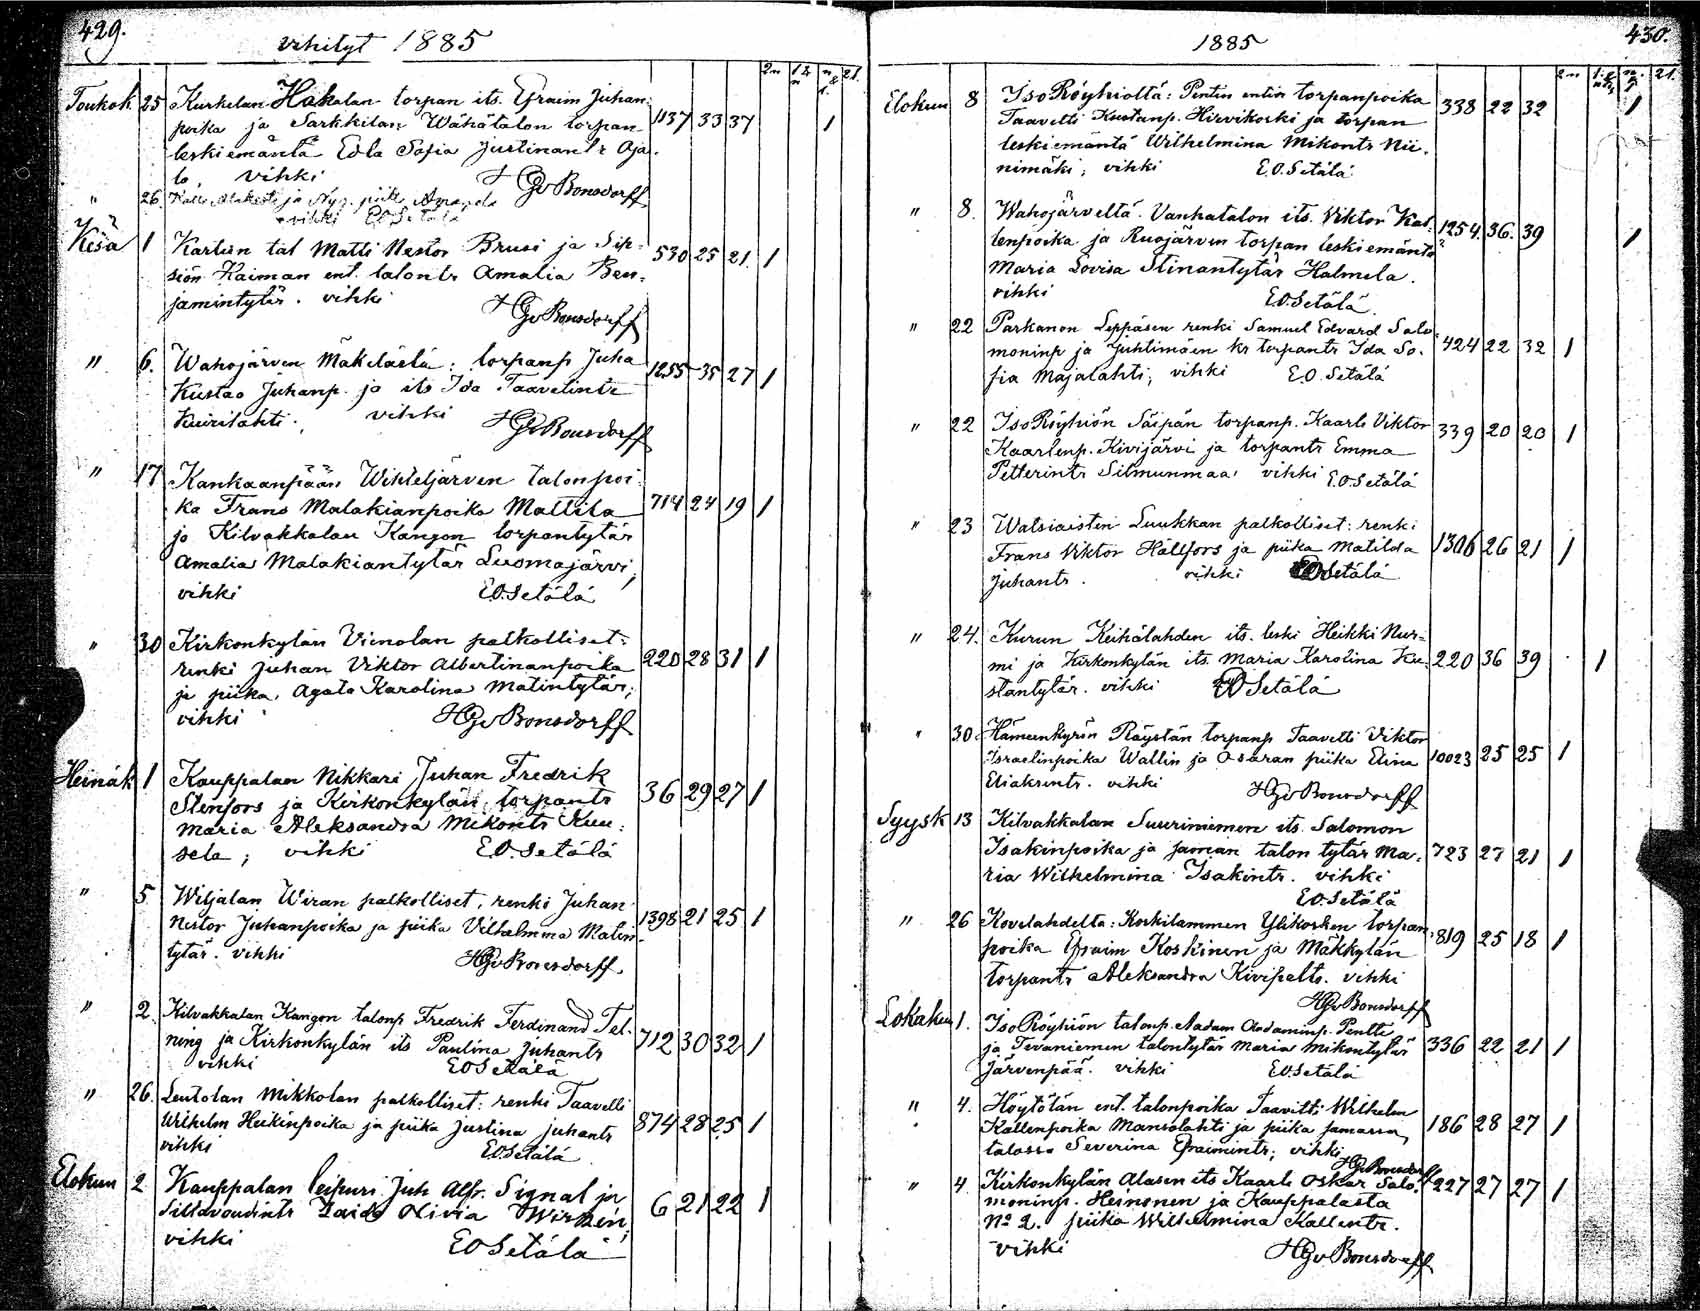 429.
vihityt 1885
2n 12 n n & 1. 21.
Toukok. 25 Kurkelan Hakalan torpan its. Efraim Juhan-
poika ja Sarkkilan Wähätalon torpan- 1137 33 37 1
leskiemäntä Edla Sofia Justinantr Oja-
la, vihki HGvBonsdorff
" 26. Kalle ja Amanda
vihki EOSetälä
Kesä 1 Karttiin tal Matti Nestor Brusi ja Sip- 530 25 21. 1
siön Kaiman ent. talontr Amalia Ben-
jamintytär. vihki HGvBonsdorff
" 6. Wahojärven Mäkelästä: torpanp Juha 1255 35 27 1
Kustaa Juhanp. ja its Ida Taavetintr
Kuirilahti. vihki HGvBonsdorff
" 17 Kankaanpään Wihteljärven talonpoi-
ka Frans Malakianpoika Mattila 714 24 19 1
ja Kilvakkalan Kangon torpantytär
Amalia Malakiantytär Luomajärvi,
vihki E.O.Setälä
" 30 Kirkonkylän Vienolan palkolliset:
renki Juhan Viktor Albertinanpoika 220 28 31 1
ja piika, Agata Karolina Matintytär,
vihki HGvBonsdorff
Heinäk 1 Kauppalan Nikkari Juhan Fredrik
Stenfors ja Kirkonkylän torpantr 36 29 27 1
Maria Aleksandra Mikontr Kuu-
sela; vihki E.O.Setälä
" 5 Wiljalan Wiran palkolliset, renki Juhan
Nestor Juhanpoika ja piika Vilhelmina Matin- 1398 21 25 1
tytär. vihki HGvBonsdorff.
" 2. Kilvakkalan Kangon talonp Fredrik Ferdinand Tel-
ning ja Kirkonkylän its Paulina Juhantr 712 30 32 1
vihki EOSetälä
" 26. Leutolan Mikkolan palkolliset: renki Taavetti
Wilhelm Heikinpoika ja piika Justina Juhantr 874 28 25 1
vihki E.O.Setälä
Elokun 2 Kauppalan leipuri Juh. Alfr. Signal ja
Siltavoudintr Zaida Olivia Wirzén, 6 21 22 1
vihki EOSetälä
430.
1885
2n 1 & n n. & 1 21.
Elokun 8 IsoRöyhiöltä: Pentin entin torpanpoika 338 22 32 1
Taavetti Kustanp. Hirvikoski ja torpan
leskiemäntä Wilhelmina Mikontr Nii-
nimäki, vihki E.O.Setälä
" 8. Wahojärveltä. Vanhatalon its. Viktor Kal- 1254. 36. 39
lenpoika ja Ruojärven torpan leskiemäntä 1
Maria Lovisa Stinantytär Halmela.
vihki E.O.Setälä.
" 22 Parkanon Leppäsen renki Samuel Edvard Salo-
moninp ja Juhtimäen kr torpantr Ida So- 424 22 32 1
fia Majalahti; vihki E.O.Setälä
" 22 IsoRöyhiön Säipän torpanp. Kaarlo Viktor 339 20 20 1
Kaarlenp. Kivijärvi ja torpantr Emma
Petterintr Silmunmaa: vihki E.O.Setälä
" 23 Watsiaisten Luukkan palkolliset: renki
Frans Viktor Hällfors ja piika Matilda 1306 26 21 1
Juhantr. vihki EOSetälä
" 24. Kurun Keihälahden its. leski Heikki Nur-
mi ja Kirkonkylän its. Maria Karolina Ku- 220 36 39 1
stantytär. vihki EOSetälä
" 30 Hämeenkyrön Röystän torpanp Taavetti Viktor
Israelinpoika Wallin ja Osaran piika Elina 10023 25 25 1
Eliaksentr. vihki HGvBonsdorff
Syysk 13 Kilvakkalan Suuriniemen its. Salomon
Isakinpoika ja saman talon tytär Ma- 723 27 21 1
ria Wilhelmina Isakintr. vihki
E.O.Setälä
" 26 Kovelahdelta: Korkilammen Ylikosken torpan- 819 25 18 1
poika Efraim Koskinen ja Mäkkylän
torpantr Aleksandra Kivipalto. vihki
HGvBonsdorff
Lokakuu 1. IsoRöyhiön talonp. Aadam Aadaminp. Pentti
ja Tevaniemen talontytär Maria Mikontytär 336 22 21 1
Järvenpää. vihki E.O.Setälä
" 4. Höytölän ent. talonpoika Taavetti Wilhelm
Kallenpoika Mansolahti ja piika samassa 186 28 27 1
talossa Severina Efraimintr; vihki
HGvBonsdorff
" 4 Kirkonkylän Alasen its Kaarlo Oskar Salo- 227 27 27 1
moninp. Heinonen ja Kauppalasta
No 2. piika Wilhelmina Kallentr.
vihki HGvBonsdorff